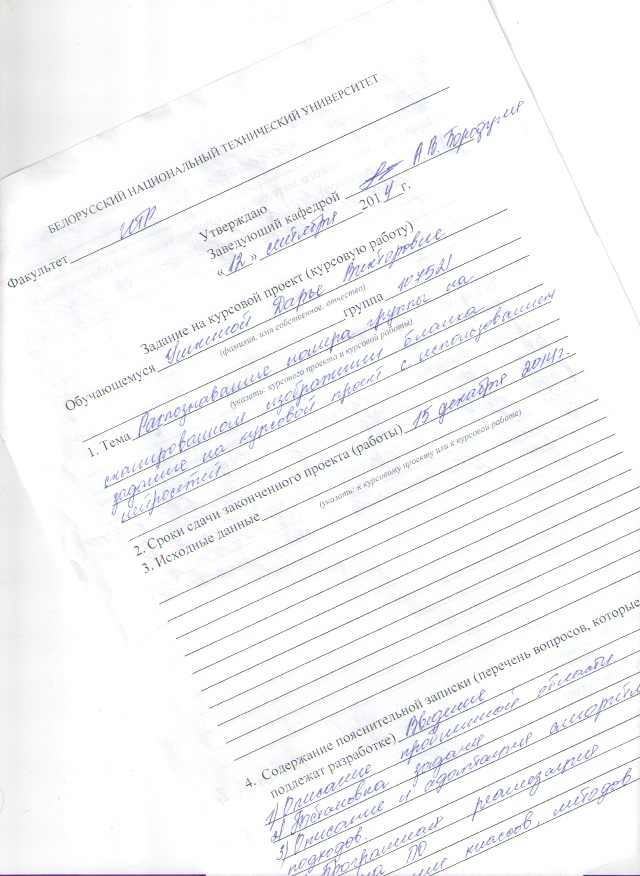 БЕЛОРУССКИЙ НАЦИОНАЛЬНЫЙ ТЕХНИЧЕСКИЙ УНИВЕРСИТЕТ
Факультет
Утверждаю
Заведующий кафедрой А.В. Бородуля
«12» сентября 2014 г.
Задание на курсовой проект (курсовую работу)
Обучающемуся Дарье Викторовне
(фамилия, имя собственное, отчество)
группа 107521
1. Тема Распознавание номера группы на
(указать: курсового проекта и курсовой работы)
сканированном изображении бланка
задание на курсовой проект с использованием
нейросетей
2. Сроки сдачи законченного проекта (работы) 15 декабря 2014г.
(указать: к курсовому проекту или к курсовой работе)
3. Исходные данные
4. Содержание пояснительной записки (перечень вопросов, которые
подлежат разработке) Введение
1) Описание проблемной области
2) Постановка задания
3) Описание и адаптация алгоритм
подходов.
Программная реализация
ПО
классов, методов